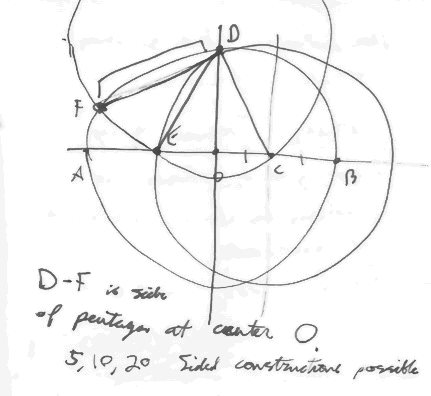 D
F
E
A
O
C
B
D-F is side
of pentagon at center O.
5, 10, 20 Sided constructions possible